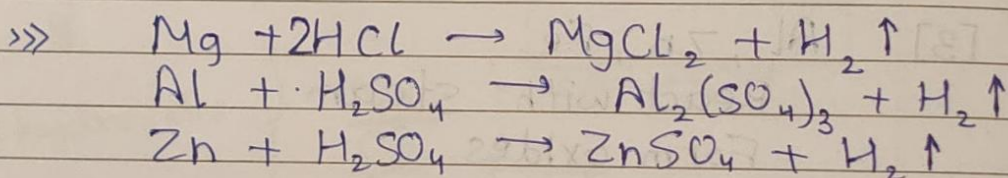 >>> Mg + 2HCl → MgCl₂ + H₂ ↑
Al + · H₂SO₄ → Al₂(SO₄)₃ + H₂ ↑
Zn + H₂SO₄ → ZnSO₄ + H₂ ↑